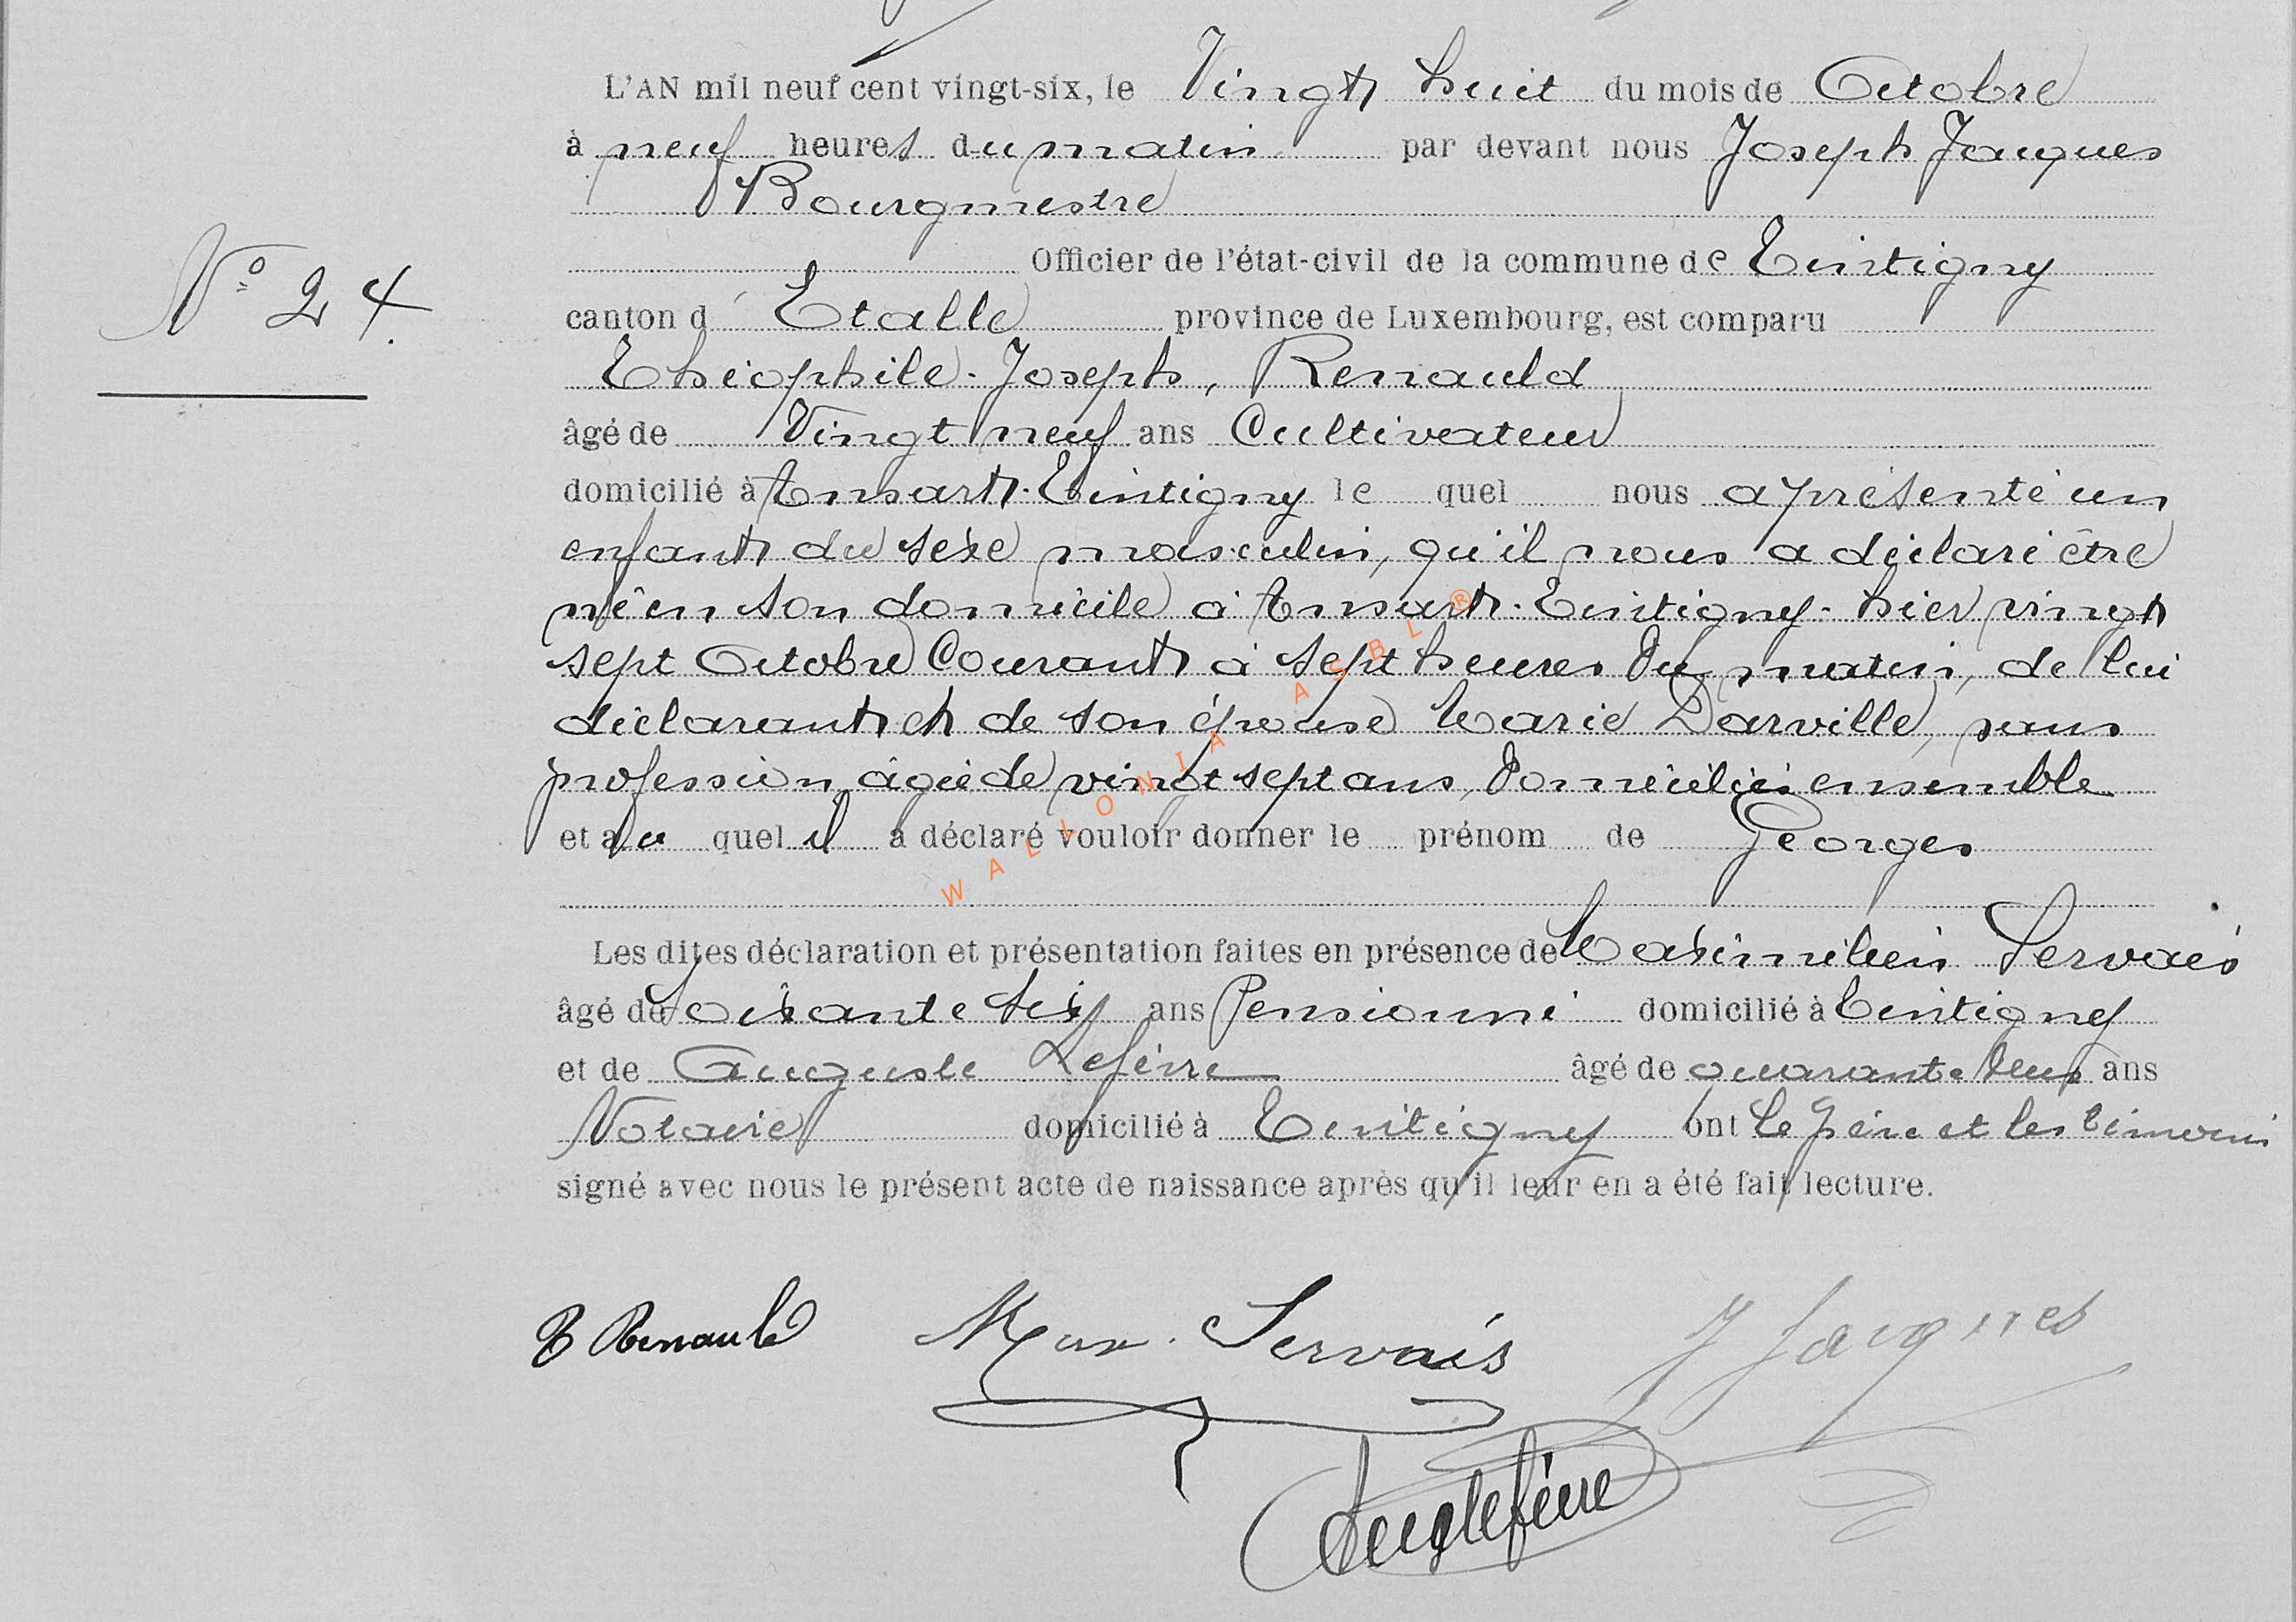 L'AN mil neuf cent vingt-six, le Vingt huit du mois de Octobre
à neuf heures du matin par devant nous Joseph Jacques
Bourgmestre
Officier de l'état-civil de la commune de Tintigny
N° 24.
canton d'Etalle province de Luxembourg, est comparu
Théophile-Joseph, Renauld
âgé de Vingt neuf ans Cultivateur
domicilié à Ansart-Tintigny le quel nous a présenté un
enfant du sexe masculin, qu'il nous a déclaré être
né en son domicile à Ansart-Tintigny- hier vingt
sept Octobre Courant à sept heures du matin, de lui
déclarant et de son épouse Marie Darville, sans
profession âgée de vingt sept ans, domiciliés ensemble
et au quel il a déclaré vouloir donner le prénom de Georges
Les dites déclaration et présentation faites en présence de Maximilien Servais
âgé de Soixante six ans Pensionné domicilié à Tintigny
et de Auguste Lefèvre âgé de quarante deux ans
Notaire domicilié à Tintigny ont le père et les témoins
signé avec nous le présent acte de naissance après qu'il leur en a été fait lecture.
T Renauld Max. Servais J Jacques
Aug Lefèvre
WALLONIA ASBL ®